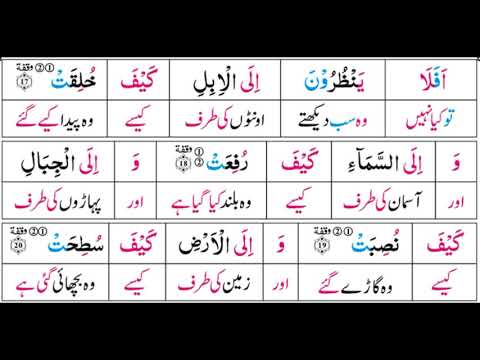 اَفَلَا یَنْظُرُوْنَ اِلَی الْاِبِلِ کَیْفَ خُلِقَتْ ۝۱۷
تو کیا نہیں وہ سب دیکھتے اونٹوں کی طرف کیسے وہ پیدا کیے گئے
وَ اِلَی السَّمَآءِ کَیْفَ رُفِعَتْ ۝۱۸ وَ اِلَی الْجِبَالِ
اور آسمان کی طرف کیسے وہ بلند کیا گیا ہے اور پہاڑوں کی طرف
کَیْفَ نُصِبَتْ ۝۱۹ وَ اِلَی الْاَرْضِ کَیْفَ سُطِحَتْ ۝۲۰
کیسے وہ گاڑے گئے اور زمین کی طرف کیسے وہ بچھائی گئی ہے